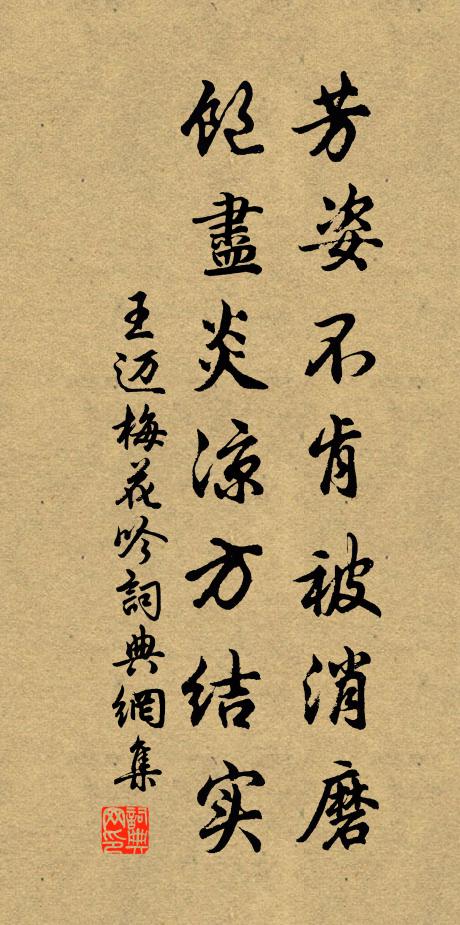 芳姿不肯被消磨
飽盡炎涼方结实
王迈梅花吟詞典網集
詞典網印